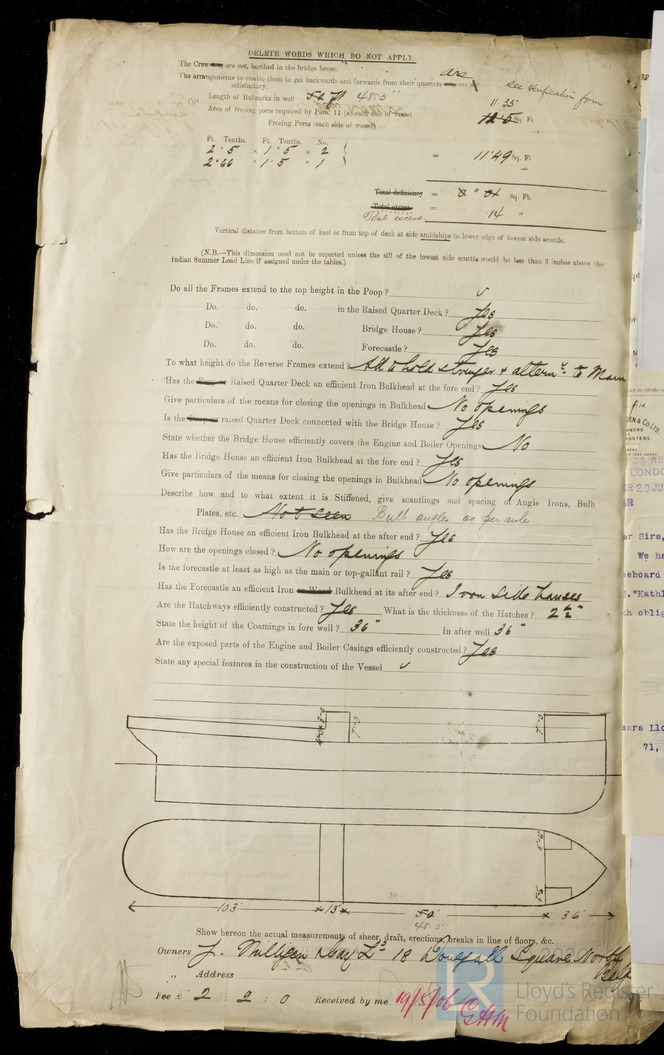 DELETE WORDS WHICH DO NOT APPLY.
The Crew are are not, berthed in the bridge house.
The arrangements to enable them to get backwards and forwards from their quarters are
satisfactory.
See Verification form
Length of Bulwarks in well 48.5
Area of freeing ports required by Para. 11 (e) each side of vessel 11.35 Sq. Ft
Freeing Ports (each side of vessel)
Ft. Tenths. Ft. Tenths. No.
2.5 × 1.5 × 2
2.66 × 1.5 × 1
= 11.49 Sq. Ft
Total deficiency = Sq. Ft.
Total excess =
Total excess 14 "
Vertical distance from bottom of keel or from top of deck at side amidships to lower edge of lowest side scuttle.
(N.B.—This dimension need not be reported unless the sill of the lowest side scuttle would be less than 6 inches above the
Indian Summer Load Line if assigned under the tables.)
Do all the Frames extend to the top height in the Poop?
Do. do. do. in the Raised Quarter Deck? Yes
Do. do. do. Bridge House? Yes
Do. do. do. Forecastle? Yes
To what height do the Reverse Frames extend? All to hold stringer & altern. to Main
Has the Raised Quarter Deck an efficient Iron Bulkhead at the fore end? Yes
Give particulars of the means for closing the openings in Bulkhead No openings
Is the raised Quarter Deck connected with the Bridge House? Yes
State whether the Bridge House efficiently covers the Engine and Boiler Openings No
Has the Bridge House an efficient Iron Bulkhead at the fore end? Yes
Give particulars of the means for closing the openings in Bulkhead No openings
Describe how and to what extent it is Stiffened, give scantlings and spacing of Angle Irons, Bulb
Plates, etc. Not seen Bulb angles as per rule
Has the Bridge House an efficient Iron Bulkhead at the after end? Yes
How are the openings closed? No openings
Is the forecastle at least as high as the main or top-gallant rail? Yes
Has the Forecastle an efficient Iron or Wood Bulkhead at its after end? Iron Side houses
Are the Hatchways efficiently constructed? Yes What is the thickness of the Hatches? 2½"
State the height of the Coamings in fore well? 36" In after well 36"
Are the exposed parts of the Engine and Boiler Casings efficiently constructed? Yes
State any special features in the construction of the Vessel
103' 13' 50' 36'
48.5
Show hereon the actual measurements of sheer, draft, erections, breaks in line of floors, &c.
Owners J. Milligen & Coy Ld 18 Donegall Square North
" Address
Fee £ 2 : 2 : 0 Received by me 19/5/06
Lloyd's Register
Foundation
EN & CO LTD.
LONDO
ar Sirs,
We ha
eeboard
."Kathl
ch oblig
sers Llo
71,